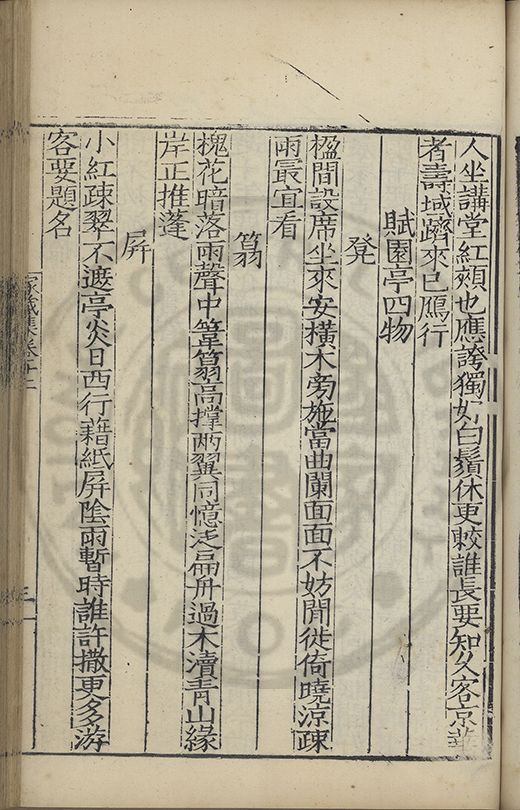 人坐講堂紅頰也應誇獨好白鬚休更較誰長要知久客京華
者壽域躋來已鴈行
賦園亭四物
凳
楹間設席坐來安橫木旁施當曲闌面面不妨閒徙倚曉涼疎
雨最宜看
篛
槐花暗落雨聲中篛高撑兩翼同憶泛扁舟過木瀆青山緣
岸正推蓬
屛
小紅疎翠不遮亭炎日西行藉紙屛陰雨暫時誰許撤更多游
客要題名
家藏集卷十二
三